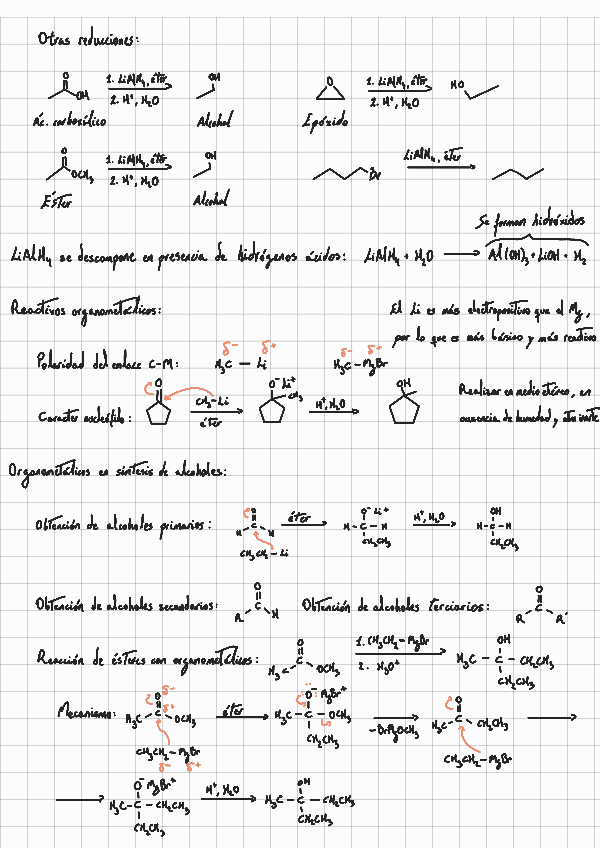 Otras reducciones:
O OH 1. LiAlH4, éter 2. H+, H2O OH
O 1. LiAlH4, éter 2. H+, H2O HO
Ác. carboxílico Alcohol Epóxido
O OCH3 1. LiAlH4, éter 2. H+, H2O OH
Br LiAlH4, éter
Éster Alcohol
Se forman hidróxidos
LiAlH4 se descompone en presencia de hidrógenos ácidos: LiAlH4 + H2O → Al(OH)3 + LiOH + H2
Reactivos organometálicos:
El Li es más electropositivo que el Mg,
por lo que es más básico y más reactivo
Polaridad del enlace C-M: δ- δ+ H3C — Li δ- δ+ H3C — MgBr
Realizar en medio etéreo, en
ausencia de humedad y atm inerte
Caracter nucleófilo: O CH3-Li éter O- Li+ CH3 H+, H2O OH
Organometálicos en síntesis de alcoholes:
Obtención de alcoholes primarios: O H H CH3CH2 — Li éter O- Li+ H-C-H CH2CH3 H+, H2O OH H-C-H CH2CH3
Obtención de alcoholes secundarios: O R C H
Obtención de alcoholes terciarios: O R C R'
Reacción de ésteres con organometálicos: O H3C C OCH3 1. CH3CH2-MgBr 2. H3O+ OH H3C - C - CH2CH3 CH2CH3
Mecanismo: O δ- δ+ H3C C OCH3 CH3CH2-MgBr δ- δ+ éter O- MgBr+ H3C - C - OCH3 CH2CH3 -BrMgOCH3 O H3C C CH2CH3 CH3CH2-MgBr
O- MgBr+ H3C-C-CH2CH3 CH2CH3 H+, H2O OH H3C-C-CH2CH3 CH2CH3